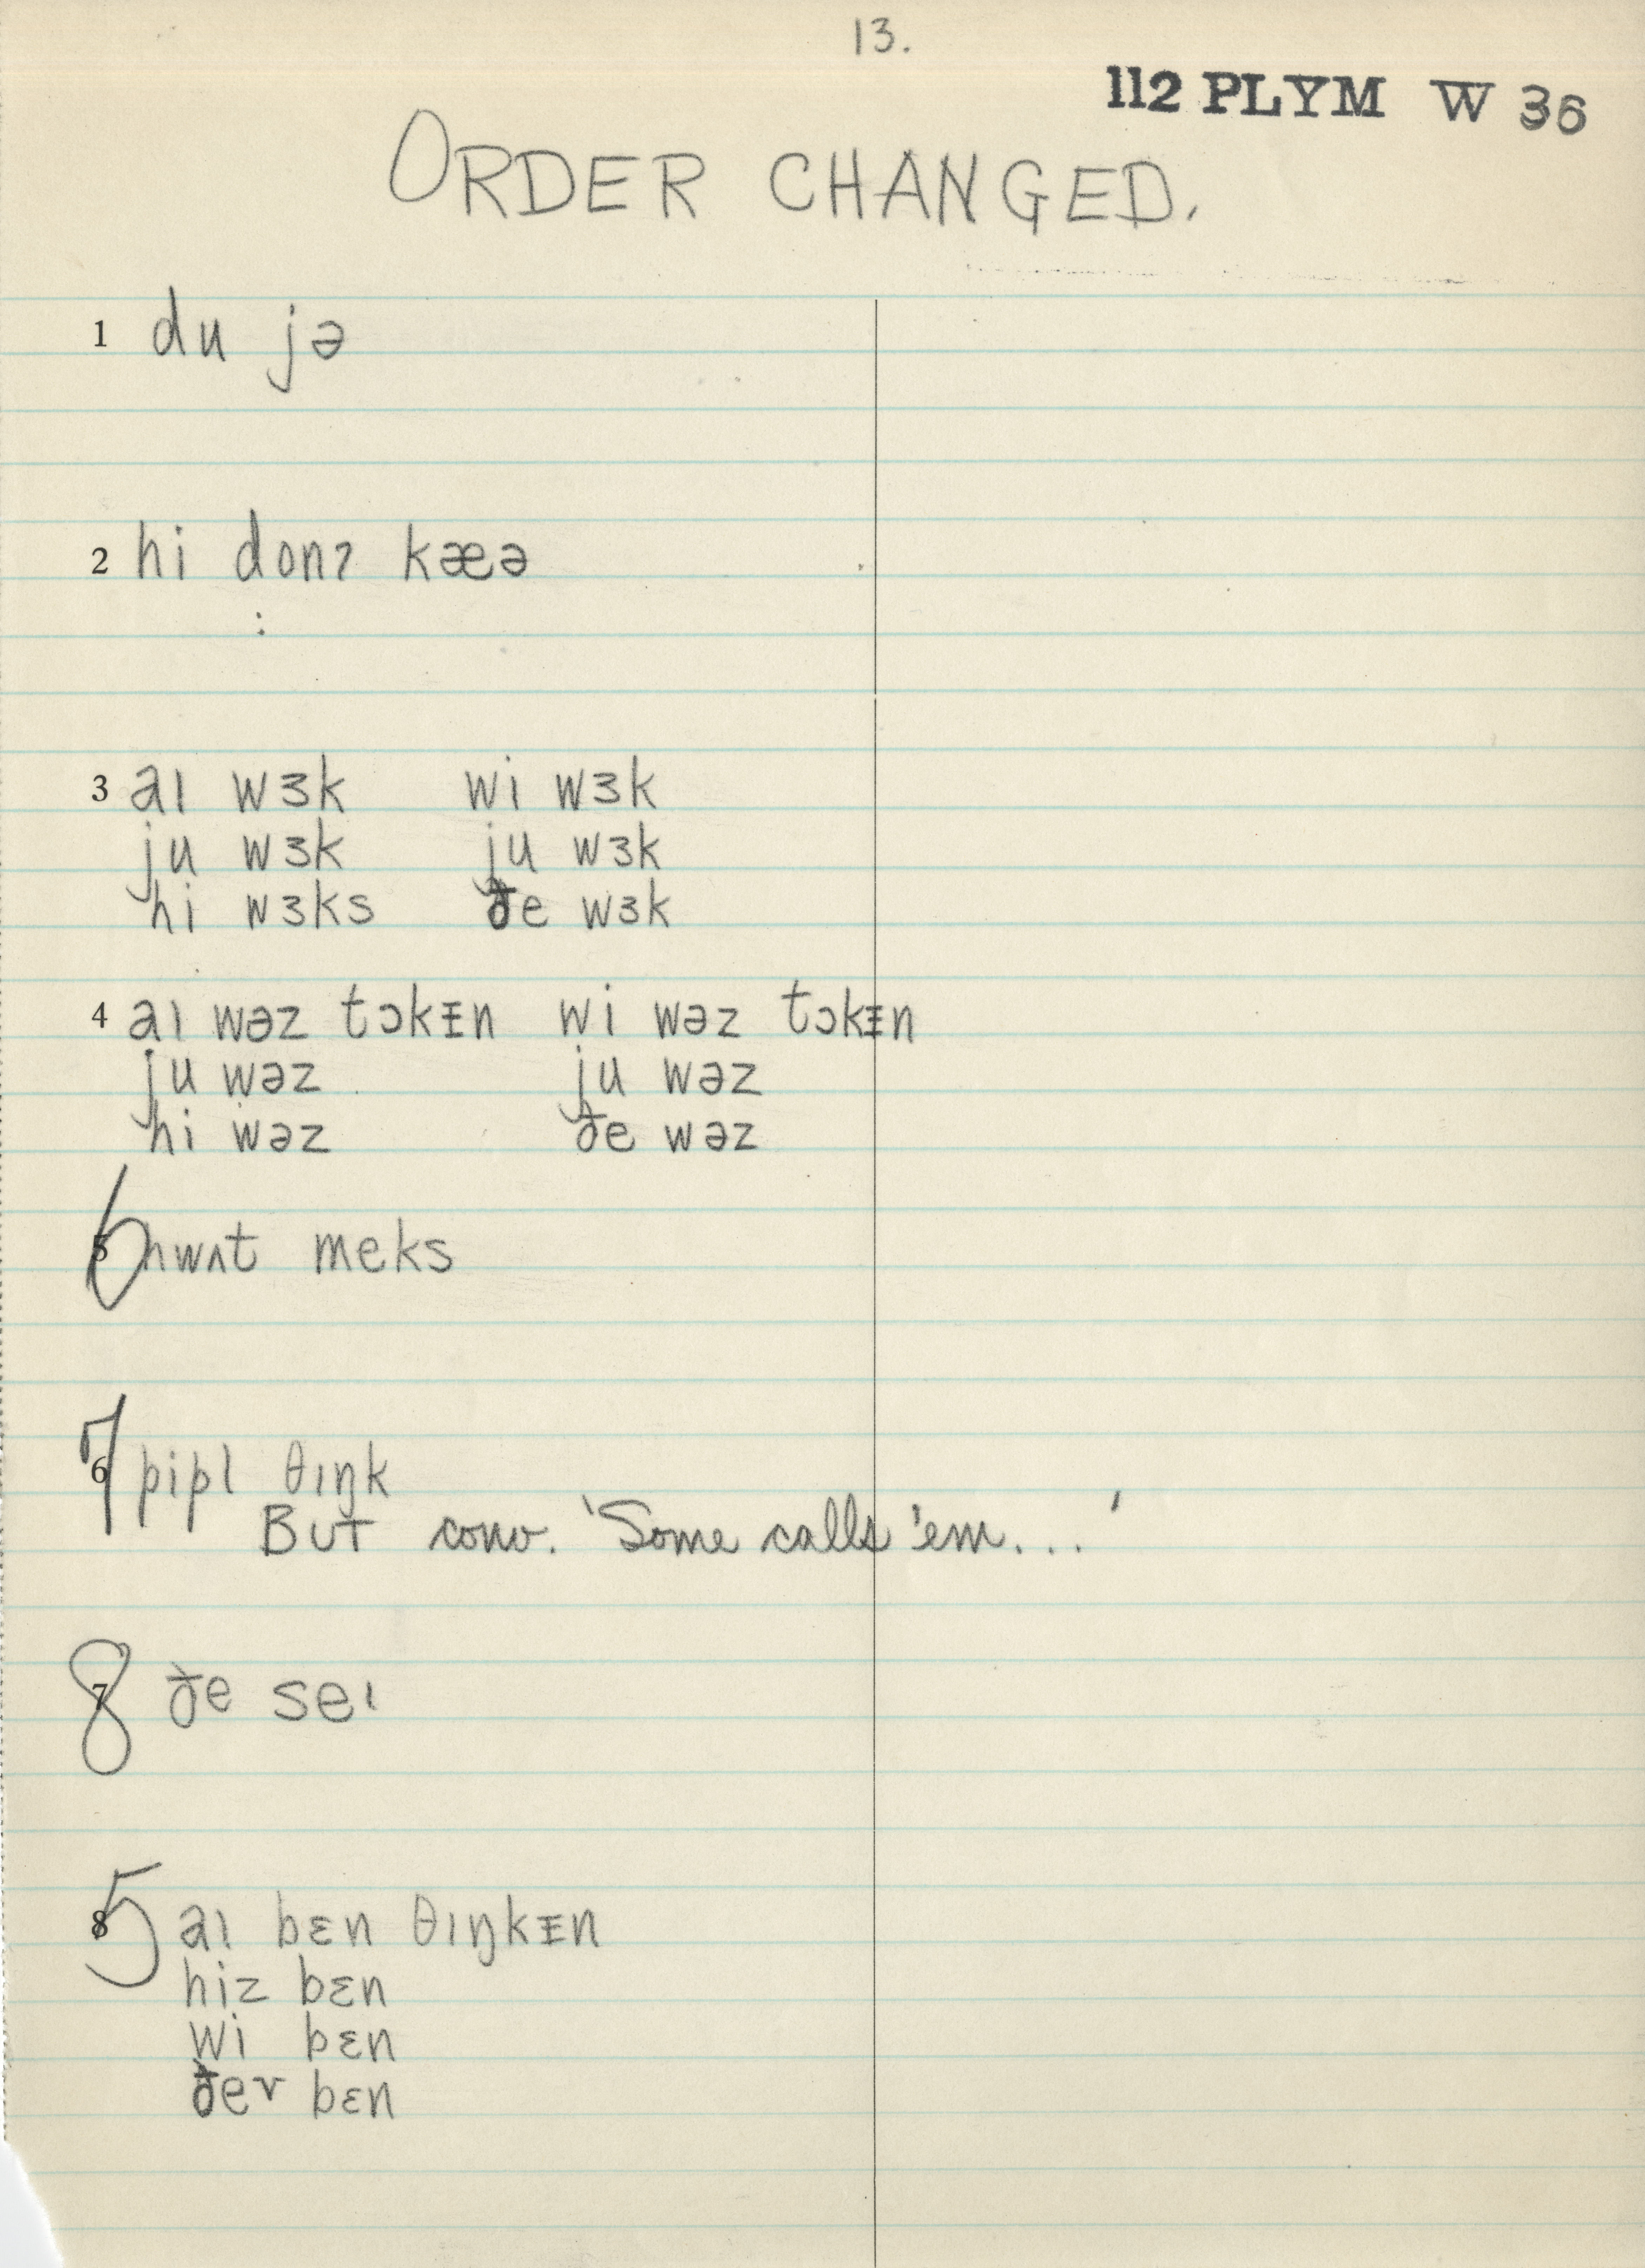 13.
112 PLYM W 36
ORDER CHANGED.
1 du jə
2 hi donɂ kæə
3 aɪ wɜk wi wɜk
ju wɜk ju wɜk
hi wɜks ðe wɜk
4 aɪ wəz tɔkᵻn wi wəz tɔkᵻn
ju wəz ju wəz
hi wəz ðe wəz
5 6 hwʌt meks
6 7 pipl θɪŋk
BUT conv. 'Some calls 'em...'
7 8 ðe seɪ
8 5 aɪ bɛn θɪŋkᵻn
hiz bɛn
wi bɛn
ðeɚ bɛn